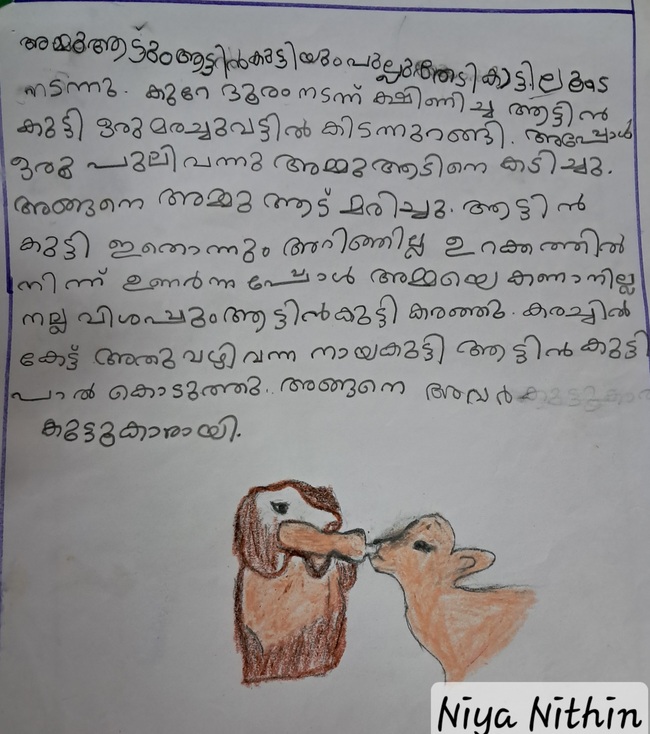 അമ്മുആടും ആട്ടിൻകുട്ടിയും പുല്ലുതേടി കാട്ടിലൂടെ
നടന്നു. കുറേ ദൂരം നടന്ന് ക്ഷീണിച്ച ആട്ടിൻ
കുട്ടി ഒരു മരച്ചുവട്ടിൽ കിടന്നുറങ്ങി. അപ്പോൾ
ഒരു പുലി വന്നു അമ്മുആടിനെ കടിച്ചു.
അങ്ങനെ അമ്മു ആട് മരിച്ചു. ആട്ടിൻ
കുട്ടി ഇതൊന്നും അറിഞ്ഞില്ല ഉറക്കത്തിൽ
നിന്ന് ഉണർന്നപ്പോൾ അമ്മയെ കണാനില്ല
നല്ല വിശപ്പും ആട്ടിൻകുട്ടി കരഞ്ഞു. കരച്ചിൽ
കേട്ട് അതു വഴി വന്ന നായകുട്ടി ആട്ടിൻ കുട്ടി
പാൽ കൊടുത്തു. അങ്ങനെ അവർ
കൂട്ടുകാരായി.
Niya Nithin